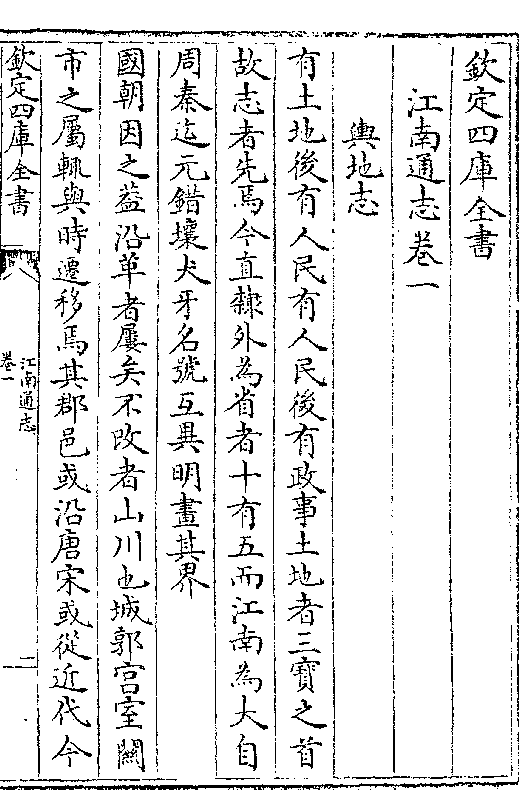 欽定四庫全書
江南通志卷一
輿地志
有土地後有人民有人民後有政事土地者三寶之首
故志者先焉今直隸外為省者十有五而江南為大自
周秦迄元錯壤犬牙名號互異明畫其界
國朝因之葢沿革者屢矣不改者山川也城郭宮室闤
市之屬輒與時遷移焉其郡邑或沿唐宋或從近代今
欽定四庫全書
江南通志
卷一
一